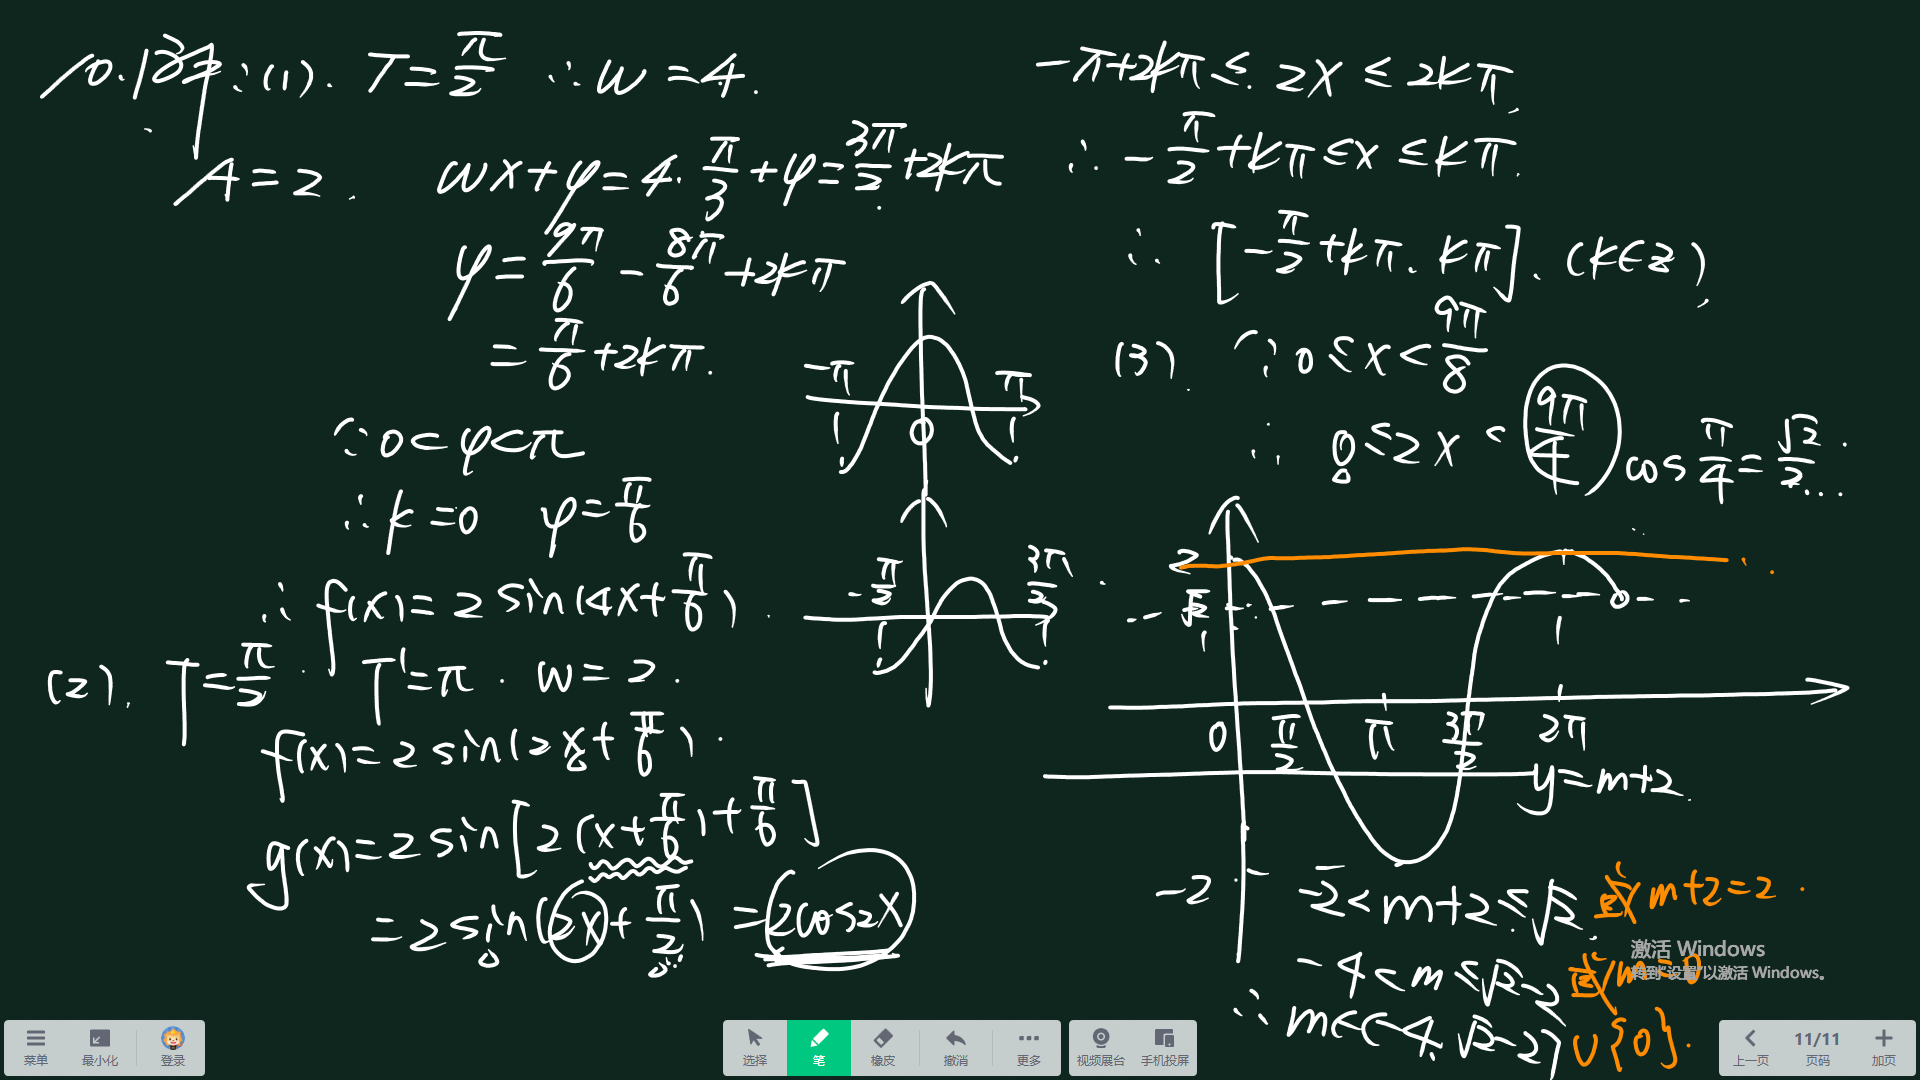 10.解:(1). T=π/2 ∴w=4.
A=2. wx+φ=4·π/3+φ=3π/2+2kπ
φ=9π/6-8π/6+2kπ
=π/6+2kπ.
∵0<φ<π
∴k=0 φ=π/6
∴f(x)=2sin(4x+π/6).
(2). T=π/2. T'=π. w=2.
f(x)=2sin(2x+π/6).
g(x)=2sin[2(x+π/6)+π/6]
=2sin(2x+π/2)=2cos2x
-π π
0
-π/2 3π/2
-π+2kπ≤2x≤2kπ.
∴-π/2+kπ≤x≤kπ.
∴[-π/2+kπ, kπ]. (k∈Z)
(3). ∵0≤x<9π/8
∴0≤2x<9π/4 cosπ/4=√2/2...
2
√2
0 π/2 π 3π/2 2π
y=m+2.
-2
-2<m+2≤√2 或m+2=2.
-4<m≤√2-2 或m=0
∴m∈(-4,√2-2]∪{0}.
激活 Windows
转到"设置"以激活 Windows。
菜单 最小化 登录 选择 笔 橡皮 撤消 更多 视频展台 手机投屏 上一页 11/11 页码 加页